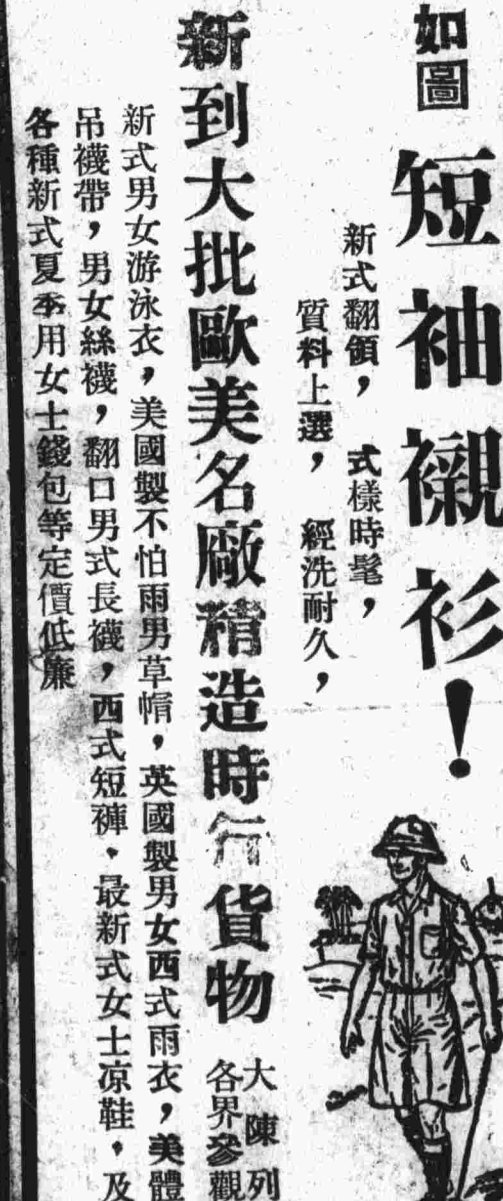 如圖
短袖襯衫！
新式翻領，式樣時髦，
質料上選，經洗耐久，
新到大批歐美名廠精造時行貨物
大陳列
各界參觀
新式男女游泳衣，美國製不怕雨男草帽，英國製男女西式雨衣，美體
吊襪帶，男女絲襪，翻口男式長襪，西式短褲，最新式女士凉鞋，及
各種新式夏季用女士錢包等定價低廉